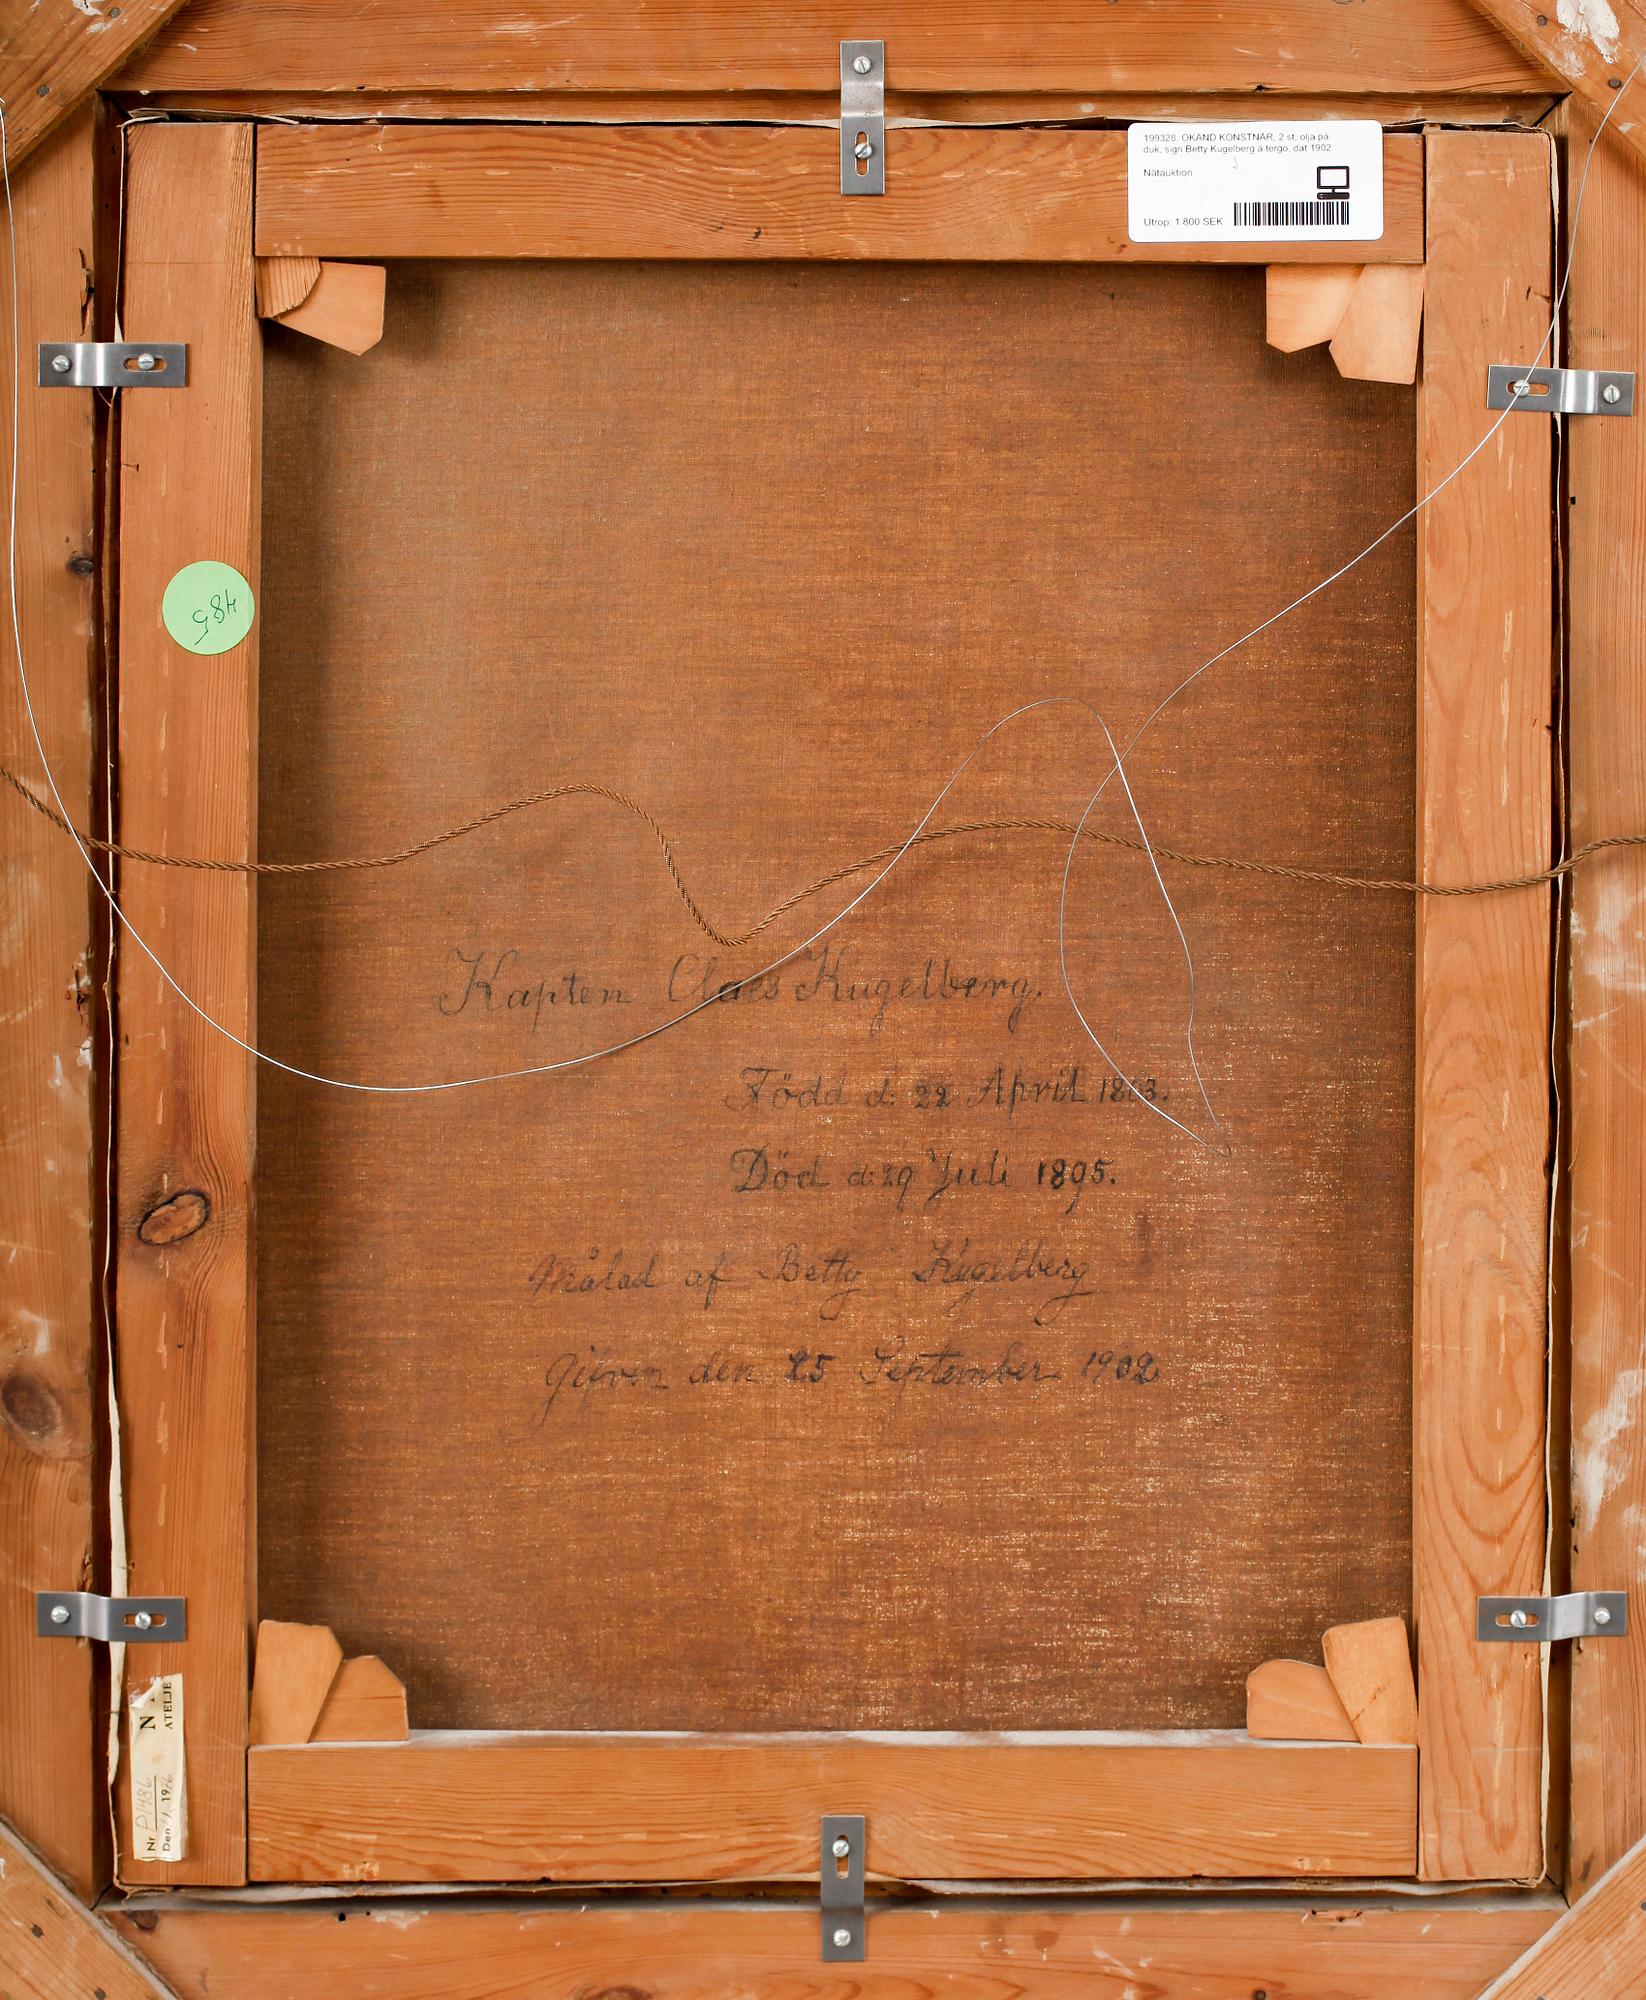 199328. OKÄND KONSTNÄR, 2 st, olja på
duk, sign Betty Kugelberg à tergo, dat 1902.
Nätauktion
Utrop: 1 800 SEK
485
Kapten Claes Kugelberg.
Född d: 22 April 1813.
Död d: 29 Juli 1895.
Målad af Betty Kugelberg
Gifven den 25 September 1902
N
ATELJE
Nr P1486
Den 1/1 1976